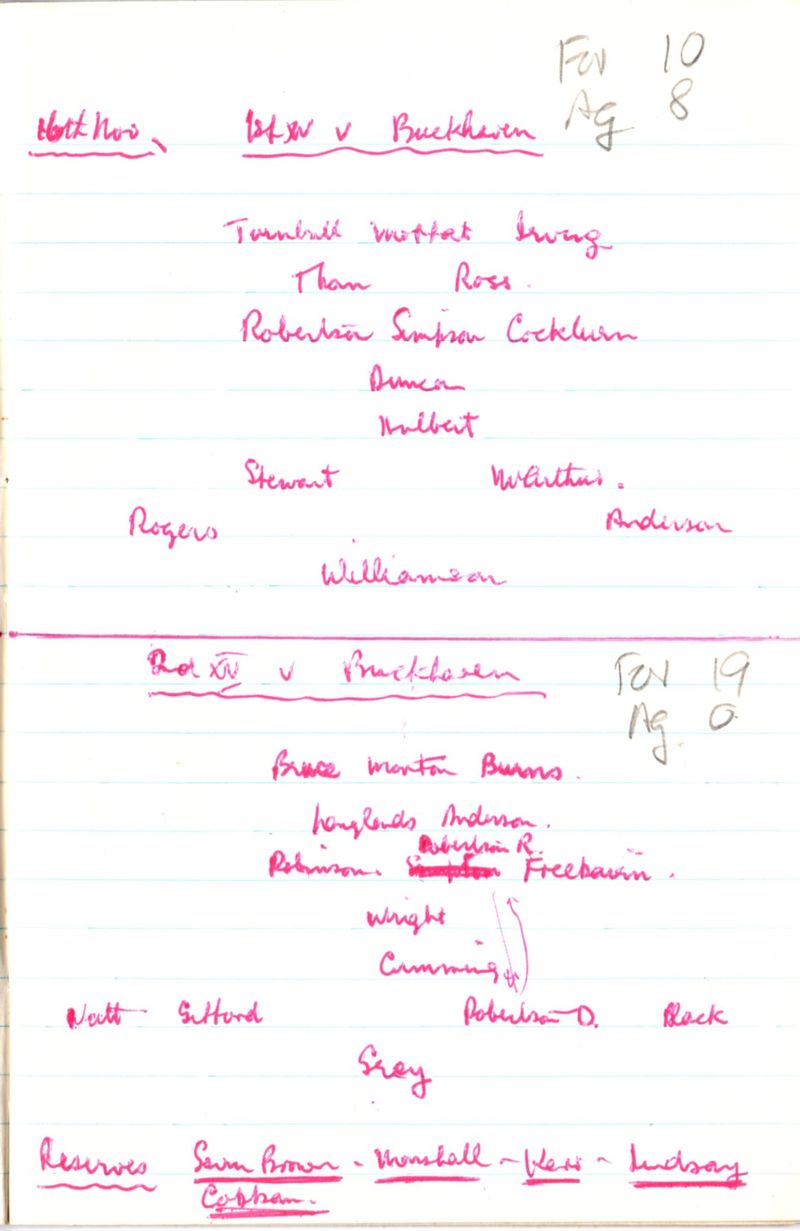 For 10
Ag 8
16th Nov. 1st XV v Buckhaven
Turnbull Moffat Irving
Thom Ross.
Robertson Simpson Cockburn
Duncan
Hulbert
Stewart McArthur.
Rogers Anderson
Williamson
2nd XV v Buckhaven
For 19
Ag. 0
Bruce Morton Burns.
Langlands Anderson.
Robertson R.
Robinson. Simpson Freebairn.
Wright
Cumming
Watt Gifford Robertson D. Black
Gray
Reserves Brown - Marshall - Kerr - Lindsay